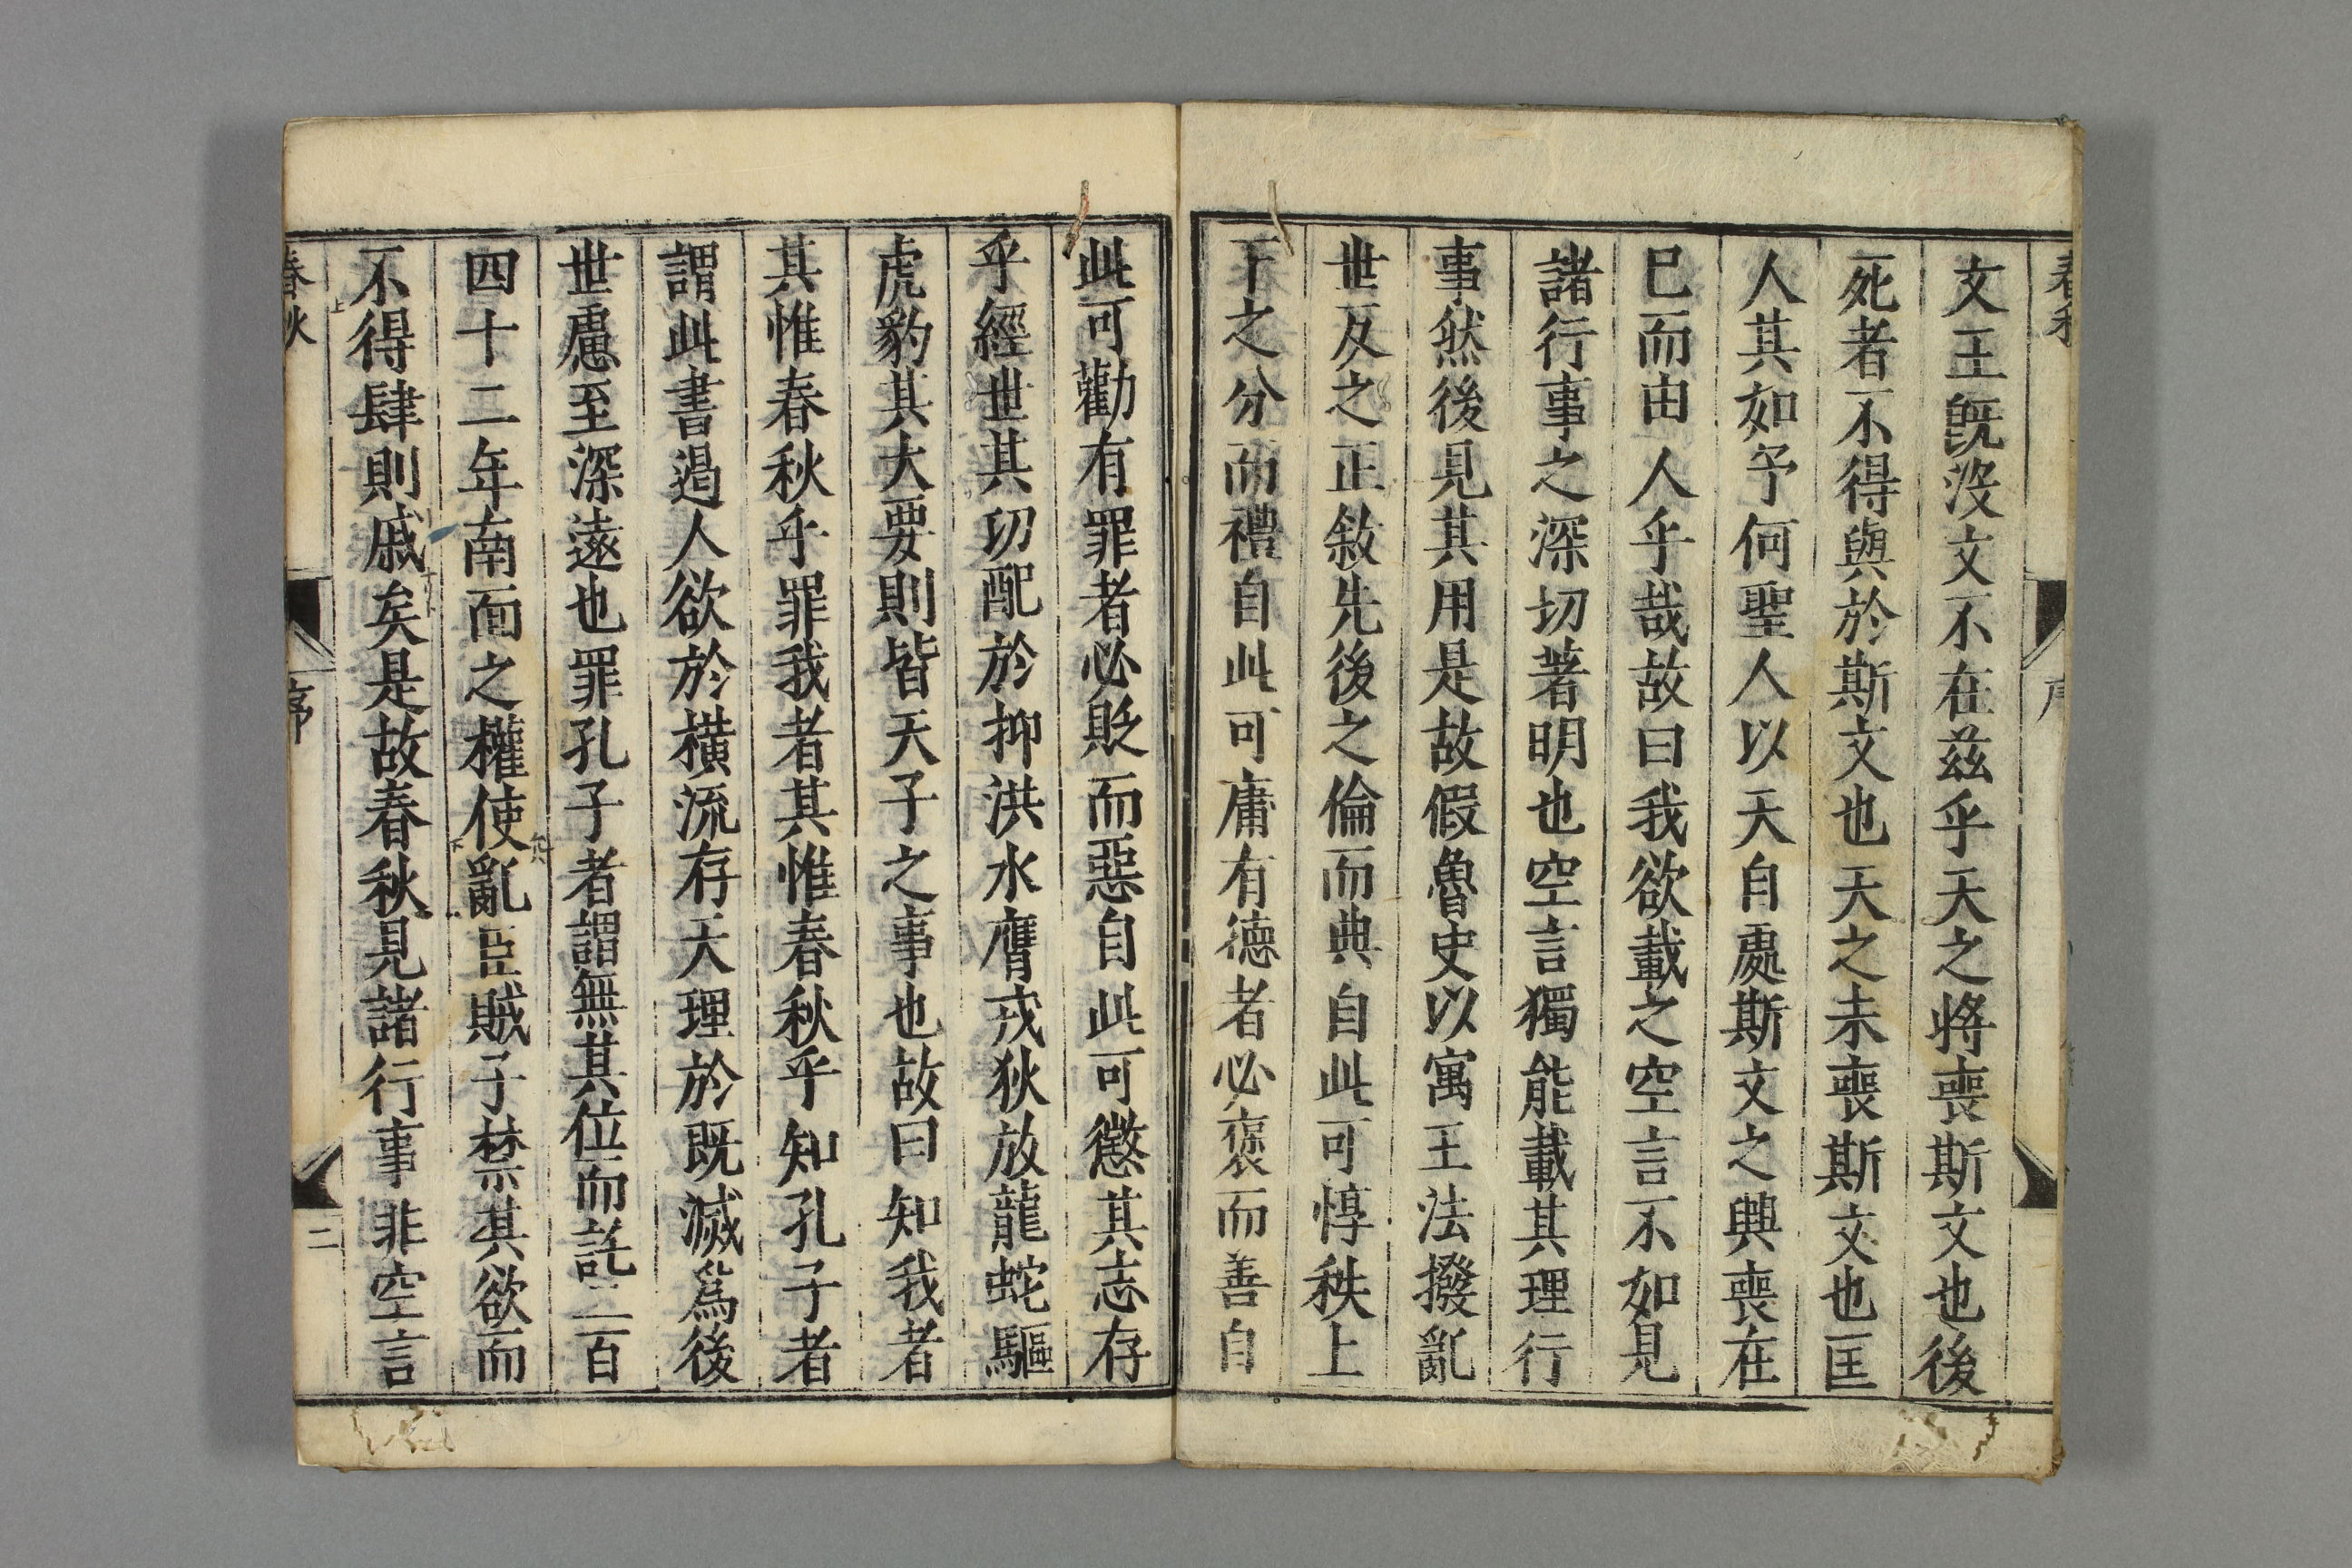 春秋
序
文王既没文不在茲乎天之將喪斯文也後
死者不得與於斯文也天之未喪斯文也匡
人其如予何聖人以天自處斯文之興喪在
已而由人乎哉故曰我欲載之空言不如見
諸行事之深切著明也空言獨能載其理行
事然後見其用是故假魯史以寓王法撥亂
世反之正敘先後之倫而典自此可惇秩上
下之分而禮自此可庸有德者必褒而善自
此可勸有罪者必貶而惡自此可懲其志存
乎經世其功配於抑洪水膺戎狄放龍蛇驅
虎豹其大要則皆天子之事也故曰知我者
其惟春秋乎罪我者其惟春秋乎知孔子者
謂此書遏人欲於橫流存天理於既滅爲後
世慮至深遠也罪孔子者謂無其位而託二百
四十二年南面之權使亂臣賊子禁其欲而
不得肆則戚矣是故春秋見諸行事非空言
春秋
序
二